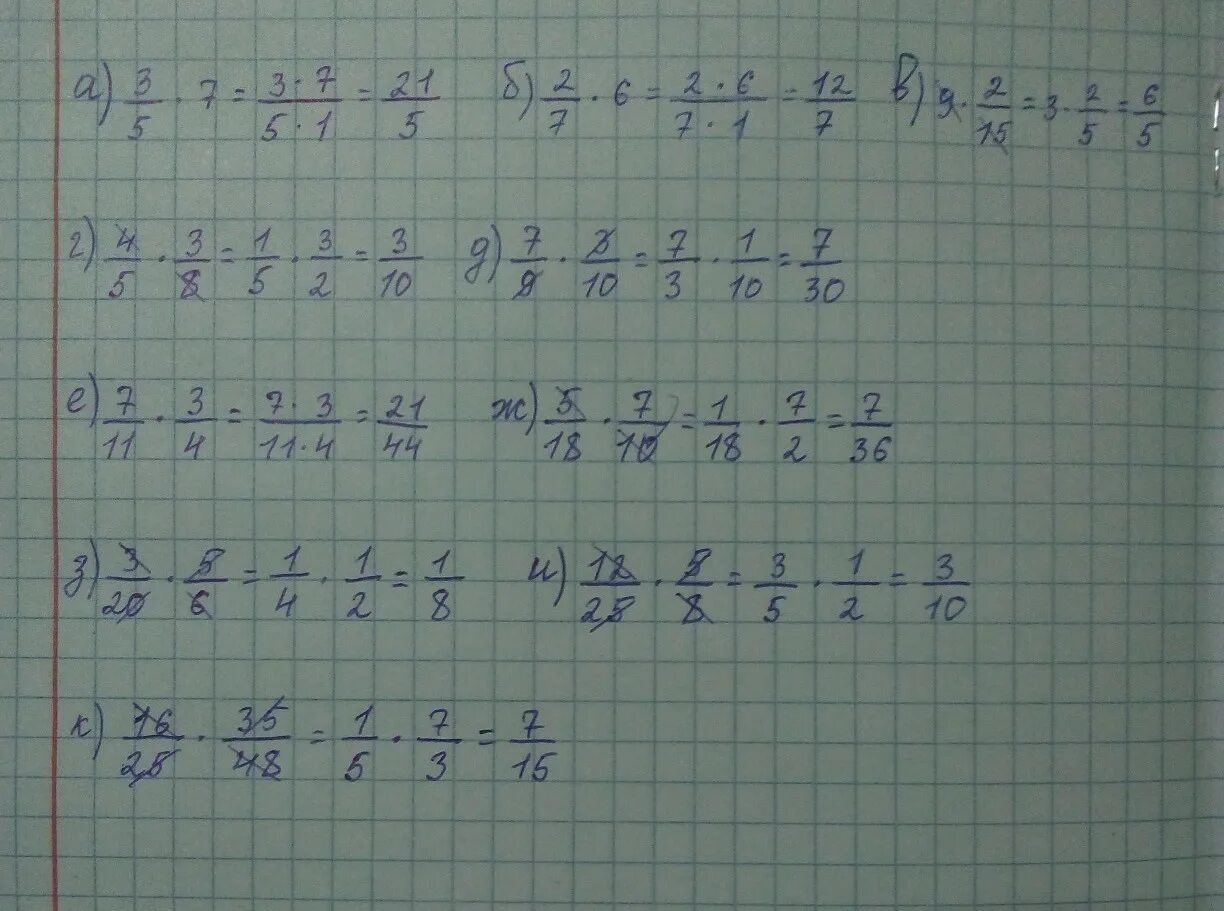 а) 3/5 · 7 = 3·7/5·1 = 21/5 б) 2/7 · 6 = 2·6/7·1 = 12/7 в) 9 · 2/15 = 3 · 2/5 = 6/5
г) 4/5 · 3/8 = 1/5 · 3/2 = 3/10 д) 7/9 · 3/10 = 7/3 · 1/10 = 7/30
е) 7/11 · 3/4 = 7·3/11·4 = 21/44 ж) 5/18 · 7/10 = 1/18 · 7/2 = 7/36
з) 3/20 · 5/6 = 1/4 · 1/2 = 1/8 и) 12/25 · 5/8 = 3/5 · 1/2 = 3/10
к) 16/25 · 35/48 = 1/5 · 7/3 = 7/15